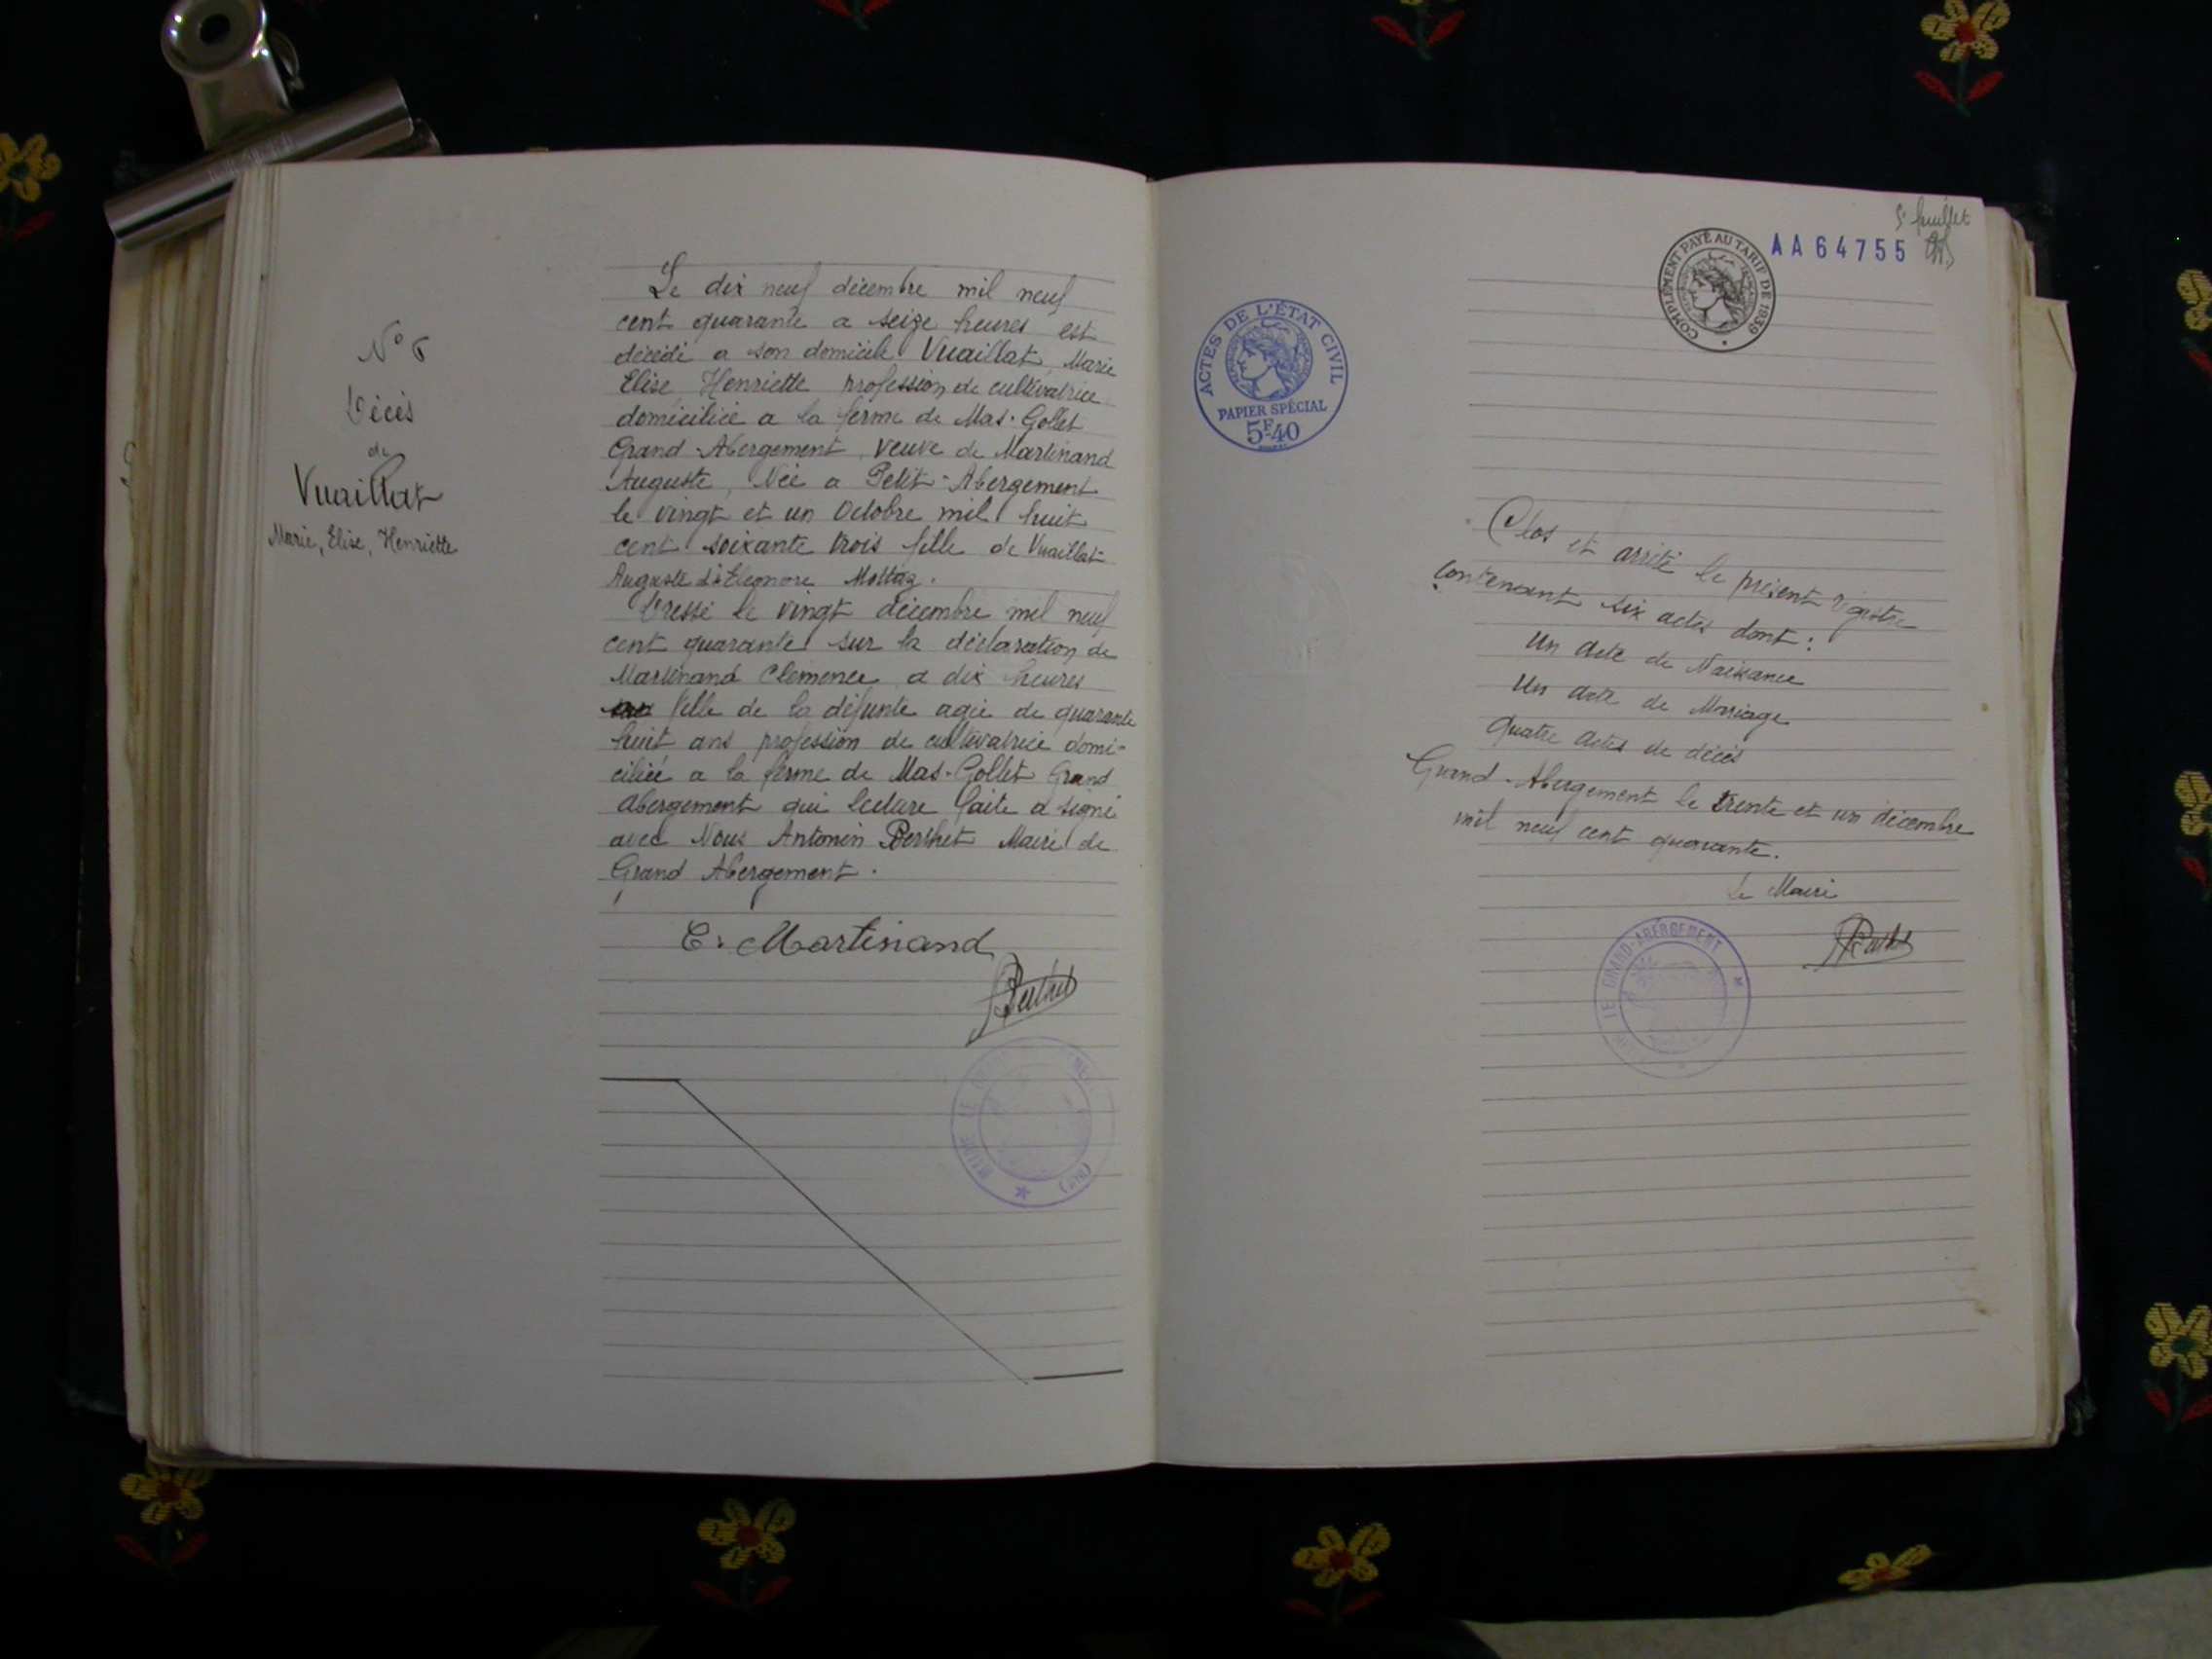 N° 6
Décès
de
Vuaillat
Marie, Elise, Henriette
Le dix neuf décembre mil neuf
cent quarante a seize heures est
décédé a son domicile Vuaillat Marie
Elise Henriette profession de cultivatrice
domiciliée a la ferme de Mas-Gollet
Grand-Abergement, veuve de Martinand
Auguste, Née a Petit-Abergement
le vingt et un Octobre mil huit
cent soixante trois fille de Vuaillat
Auguste Eleonore Mottaz.
Dressé le vingt décembre mil neuf
cent quarante sur la déclaration de
Martinand Clemence a dix heures
fille de la défunte agée de quarante
huit ans profession de cultivatrice domi-
ciliée a la ferme de Mas-Gollet Grand
Abergement qui lecture faite a signé
avec Nous Antonin Berthet Maire de
Grand Abergement.
C. Martinand
Berthet
MAIRIE LE
(AIN)
5e feuillet
AA64755
COMPLÉMENT PAYÉ AU TARIF DE 1939
ACTES DE L'ÉTAT CIVIL
PAPIER SPÉCIAL
5F40
Clos et arrêté le présent registre
contenant six actes dont :
Un Acte de Naissance
Un acte de Mariage
Quatre Actes de décès
Grand-Abergement le trente et un décembre
mil neuf cent quarante.
Le Maire
Berthet
LE GRAND-ABERGEMENT